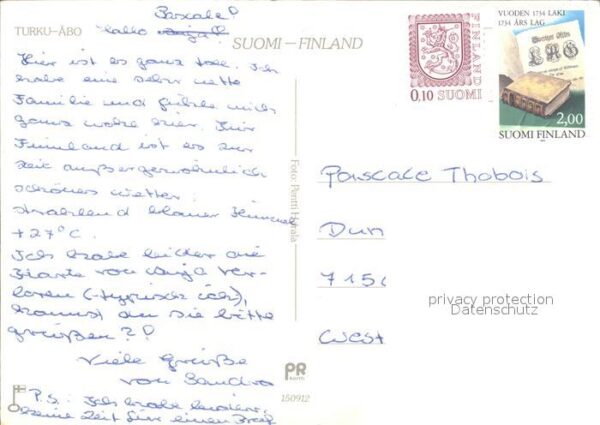 Pascale!
TURKU–ÅBO
Hallo
SUOMI – FINLAND
Hier ist es ganz toll. Ich
habe eine sehr nette
Familie und fühle mich
ganz wohl hier. Für
Finnland ist es zur
Zeit außergewöhnlich
schönes Wetter:
strahlend blauer Himmel
+27°C.
Ich habe leider die
Karte von Anja ver-
loren (-typisch ich),
kannst du sie bitte
grüßen??
Viele Grüße
von Sandra
P.S.: Ich habe leider
keine Zeit für einen Brief
Foto: Pentti Harala
PR
KORTTI
150912
FINLAND
0,10 SUOMI
VUODEN 1734 LAKI
1734 ÅRS LAG
LAG
2,00
SUOMI FINLAND
Pascale Thobois
Dun
715
West
privacy protection
Datenschutz